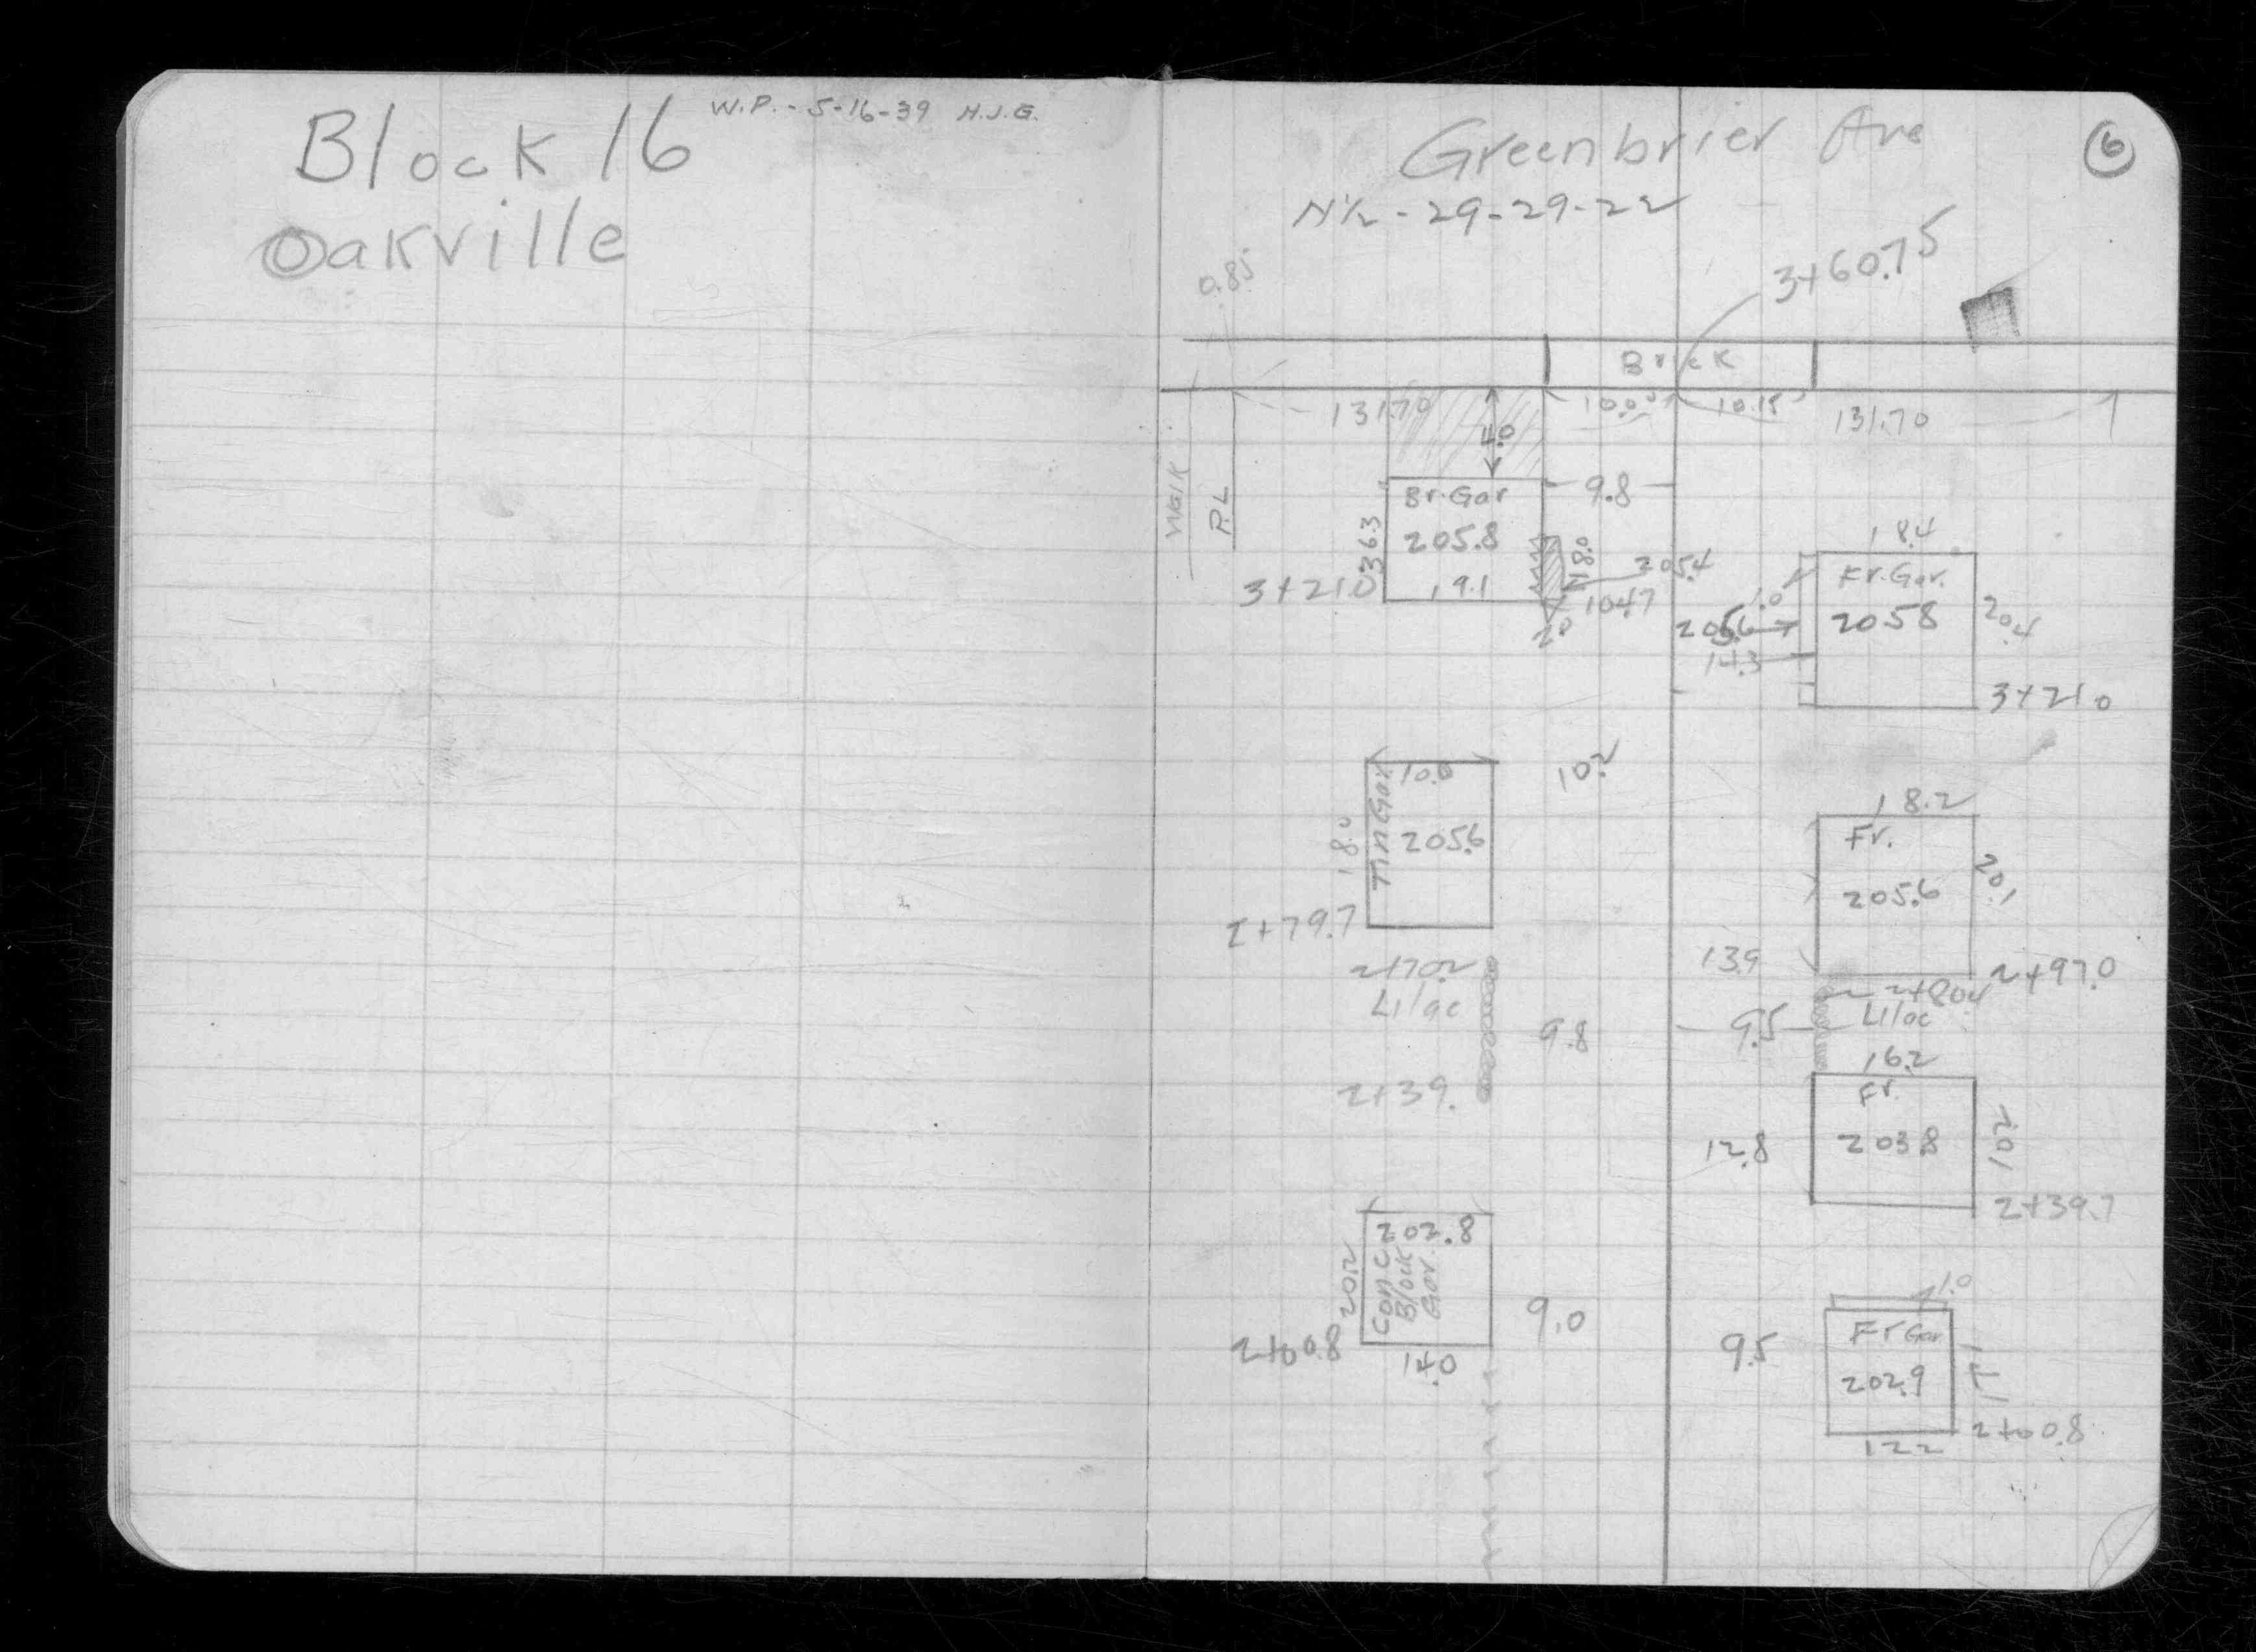 W.P. - 5-16-39 H.J.G.
Block 16
Oakville
Greenbrier Ave
6
N½ - 29-29-22
3+60.75
0.85
Brick
131.70
10.0
10.15
131.70
4.0
Walk
P.L
Br. Gar
9.8
205.8
36.3
18.0
205.4
3+21.0
19.1
104.7
2.0
18.4
Fr. Gar.
1.0
205.8
20.4
205.6
14.3
3+21.0
10.0
10.2
Tin Gar
18.0
205.6
2+79.7
18.2
Fr.
205.6
20.1
13.9
2+97.0
2+70.2
Lilac
9.8
2+39.
2+80.4
9.5
Lilac
16.2
Fr.
12.8
203.8
2+39.7
202.8
Conc
Block
Gar.
20.2
9.0
2+00.8
14.0
1.0
Fr Gar
9.5
202.9
2+00.8
12.2